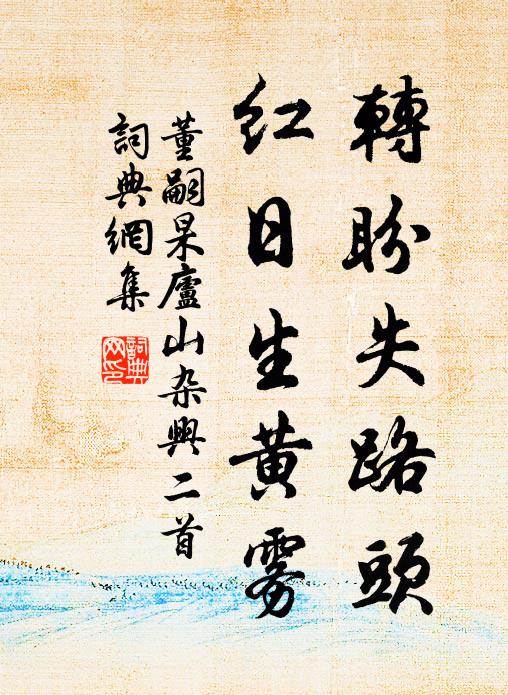 轉盼失路頭
紅日生黃霧
董嗣杲廬山杂興二首
詞典網集
詞典
网印